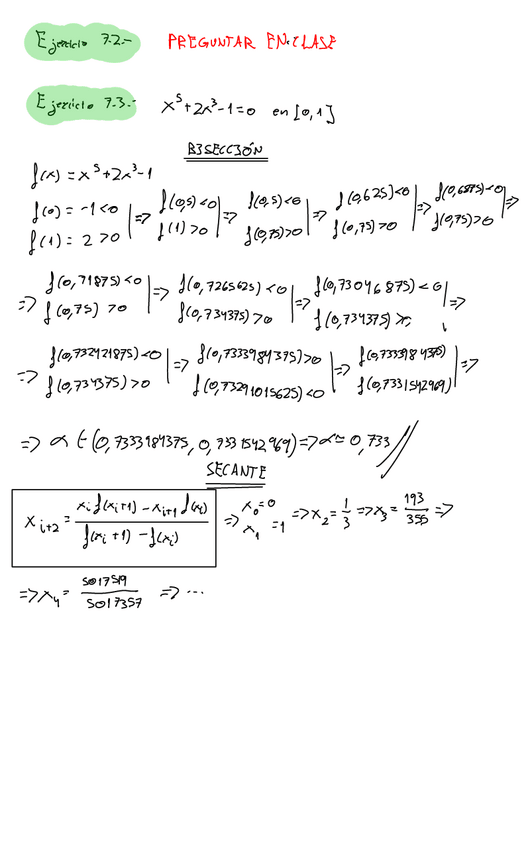 Ejercicio 7.2.- PREGUNTAR EN CLASE
Ejercicio 7.3.- x⁵+2x³-1=0 en [0,1]
BISECCIÓN
f(x) = x⁵+2x³-1
f(0) = -1<0
f(1) = 2 >0 | => f(0,5)<0
f(1)>0 | => f(0,5)<0
f(0,75)>0 | => f(0,625)<0
f(0,75)>0 | => f(0,6875)<0
f(0,75)>0 | =>
=> f(0,71875)<0
f(0,75) >0 | => f(0,7265625)<0
f(0,734375)>0 | => f(0,73046875)<0
f(0,734375) | =>
=> f(0,732421875)<0
f(0,734375)>0 | => f(0,7333984375)>0
f(0,73291015625)<0 | => f(0,7333984375)
f(0,7331542969) | =>
=> α ∈ (0,7333984375, 0,7331542969) => α ≈ 0,733 //
SECANTE
x_{i+2} = (x_i f(x_{i+1}) - x_{i+1} f(x_i)) / (f(x_{i+1}) - f(x_i)) => x₀=0
x₁=1 => x₂ = 1/3 => x₃ = 193/355 =>
=> x₄ = 5017519/5017357 => ...